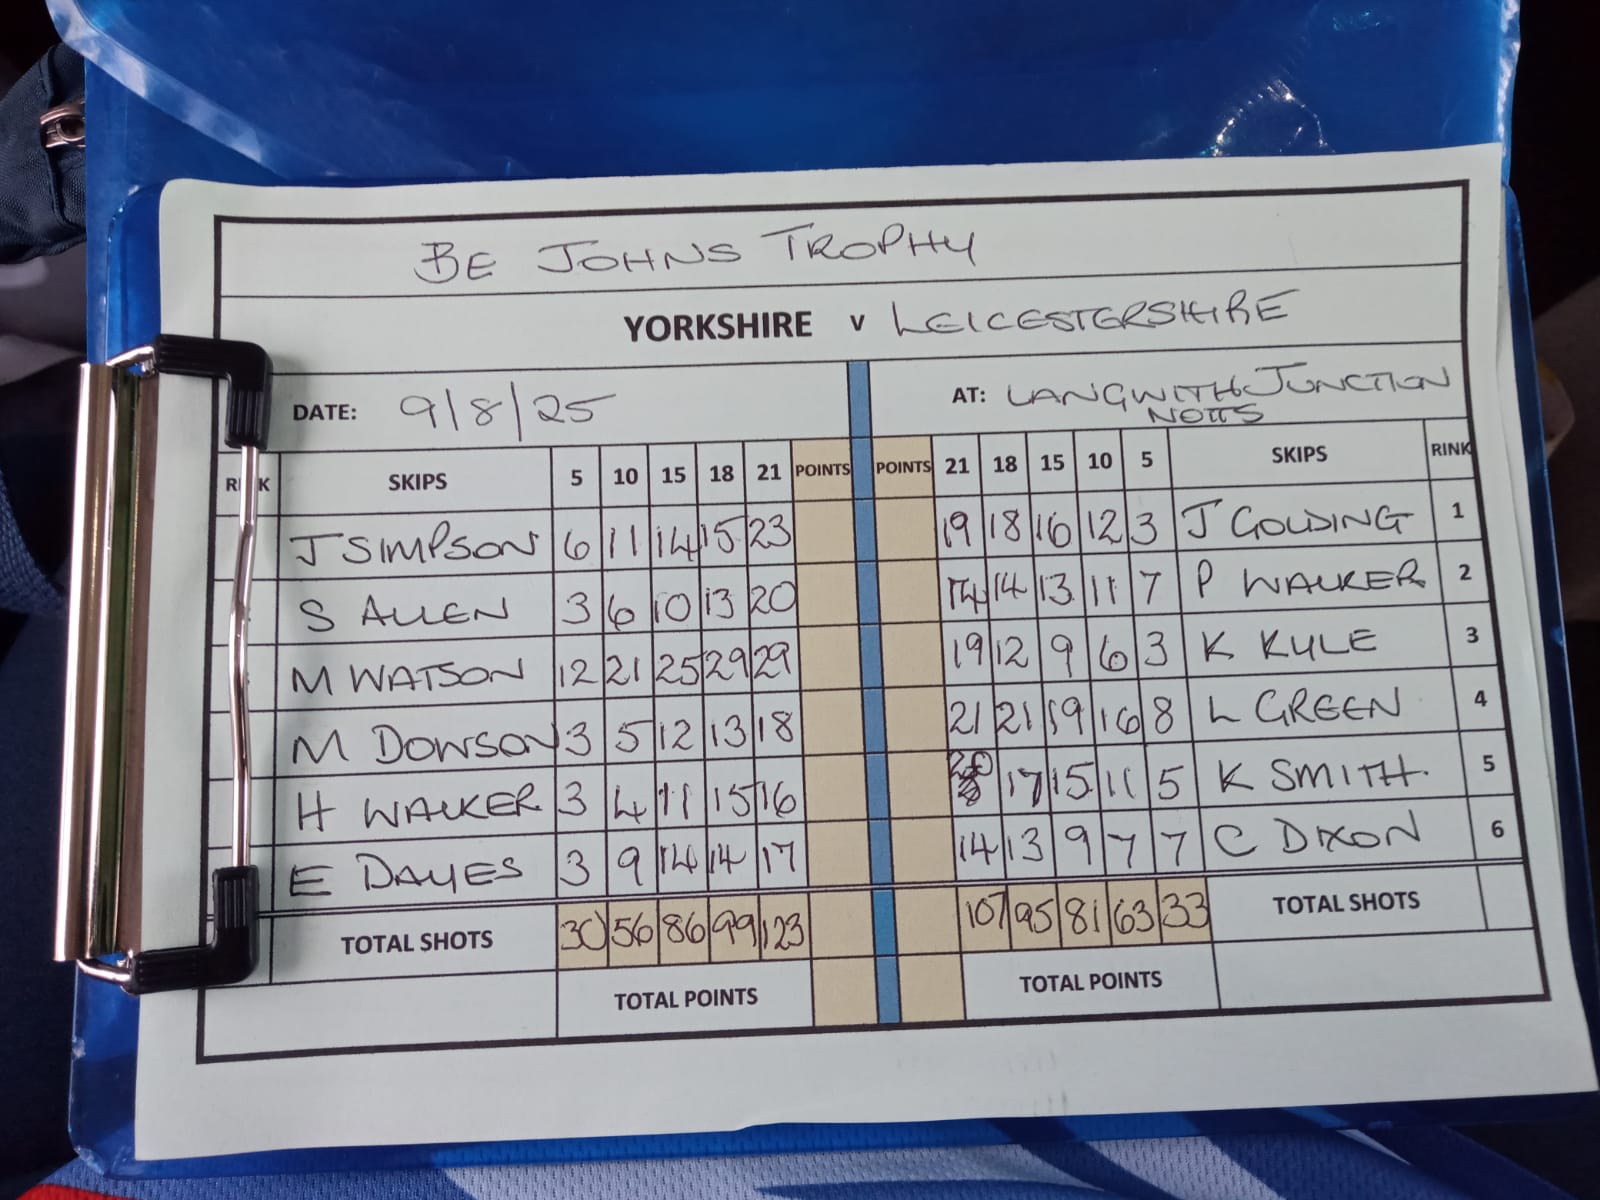 BE JOHNS TROPHY
YORKSHIRE v LEICESTERSHIRE
DATE: 9/8/25 AT: LANGWITH JUNCTION
NOTTS
SKIPS 5 10 15 18 21 POINTS POINTS 21 18 15 10 5 SKIPS RINK
J SIMPSON 6 11 14 15 23 19 18 16 12 3 J GOLDING 1
S ALLEN 3 6 10 13 20 14 14 13 11 7 P WALKER 2
M WATSON 12 21 25 29 29 19 12 9 6 3 K KYLE 3
M DOWSON 3 5 12 13 18 21 21 19 16 8 L GREEN 4
H WALKER 3 4 11 15 16 20 17 15 11 5 K SMITH. 5
E DAYES 3 9 14 14 17 14 13 9 7 7 C DIXON 6
TOTAL SHOTS 30 56 86 99 123 107 95 81 63 33 TOTAL SHOTS
TOTAL POINTS TOTAL POINTS